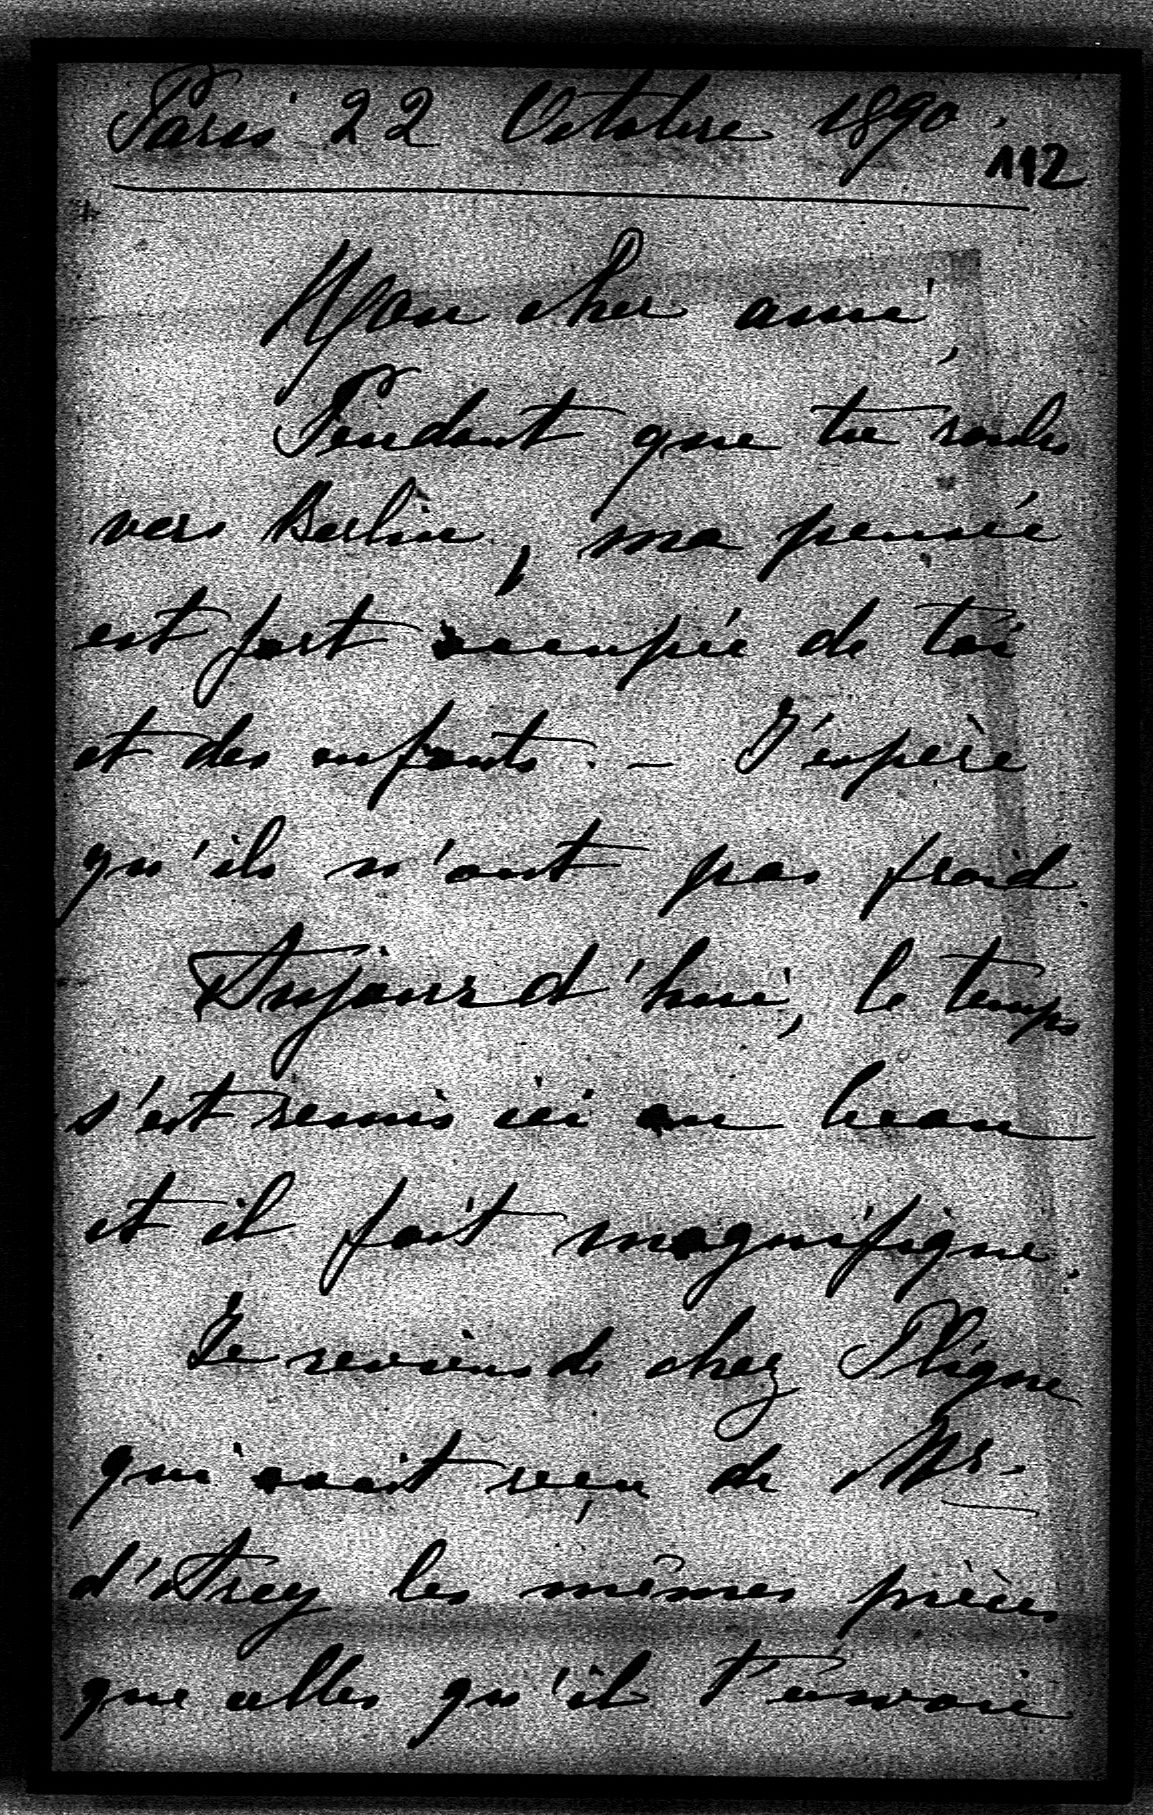 Paris 22 Octobre 1890.
112
Mon cher ami,
Pendant que tu roules
vers Berlin, ma pensée
est fort occupée de toi
et des enfants. - J'espère
qu'ils n'ont pas froid.
Aujourd'hui, le temps
s'est remis ici au beau
et il fait magnifique.
Je reviens de chez Pligne
qui avait reçu de Mr.
d'Arey les mêmes pièces
que celles qu'il t'envoie